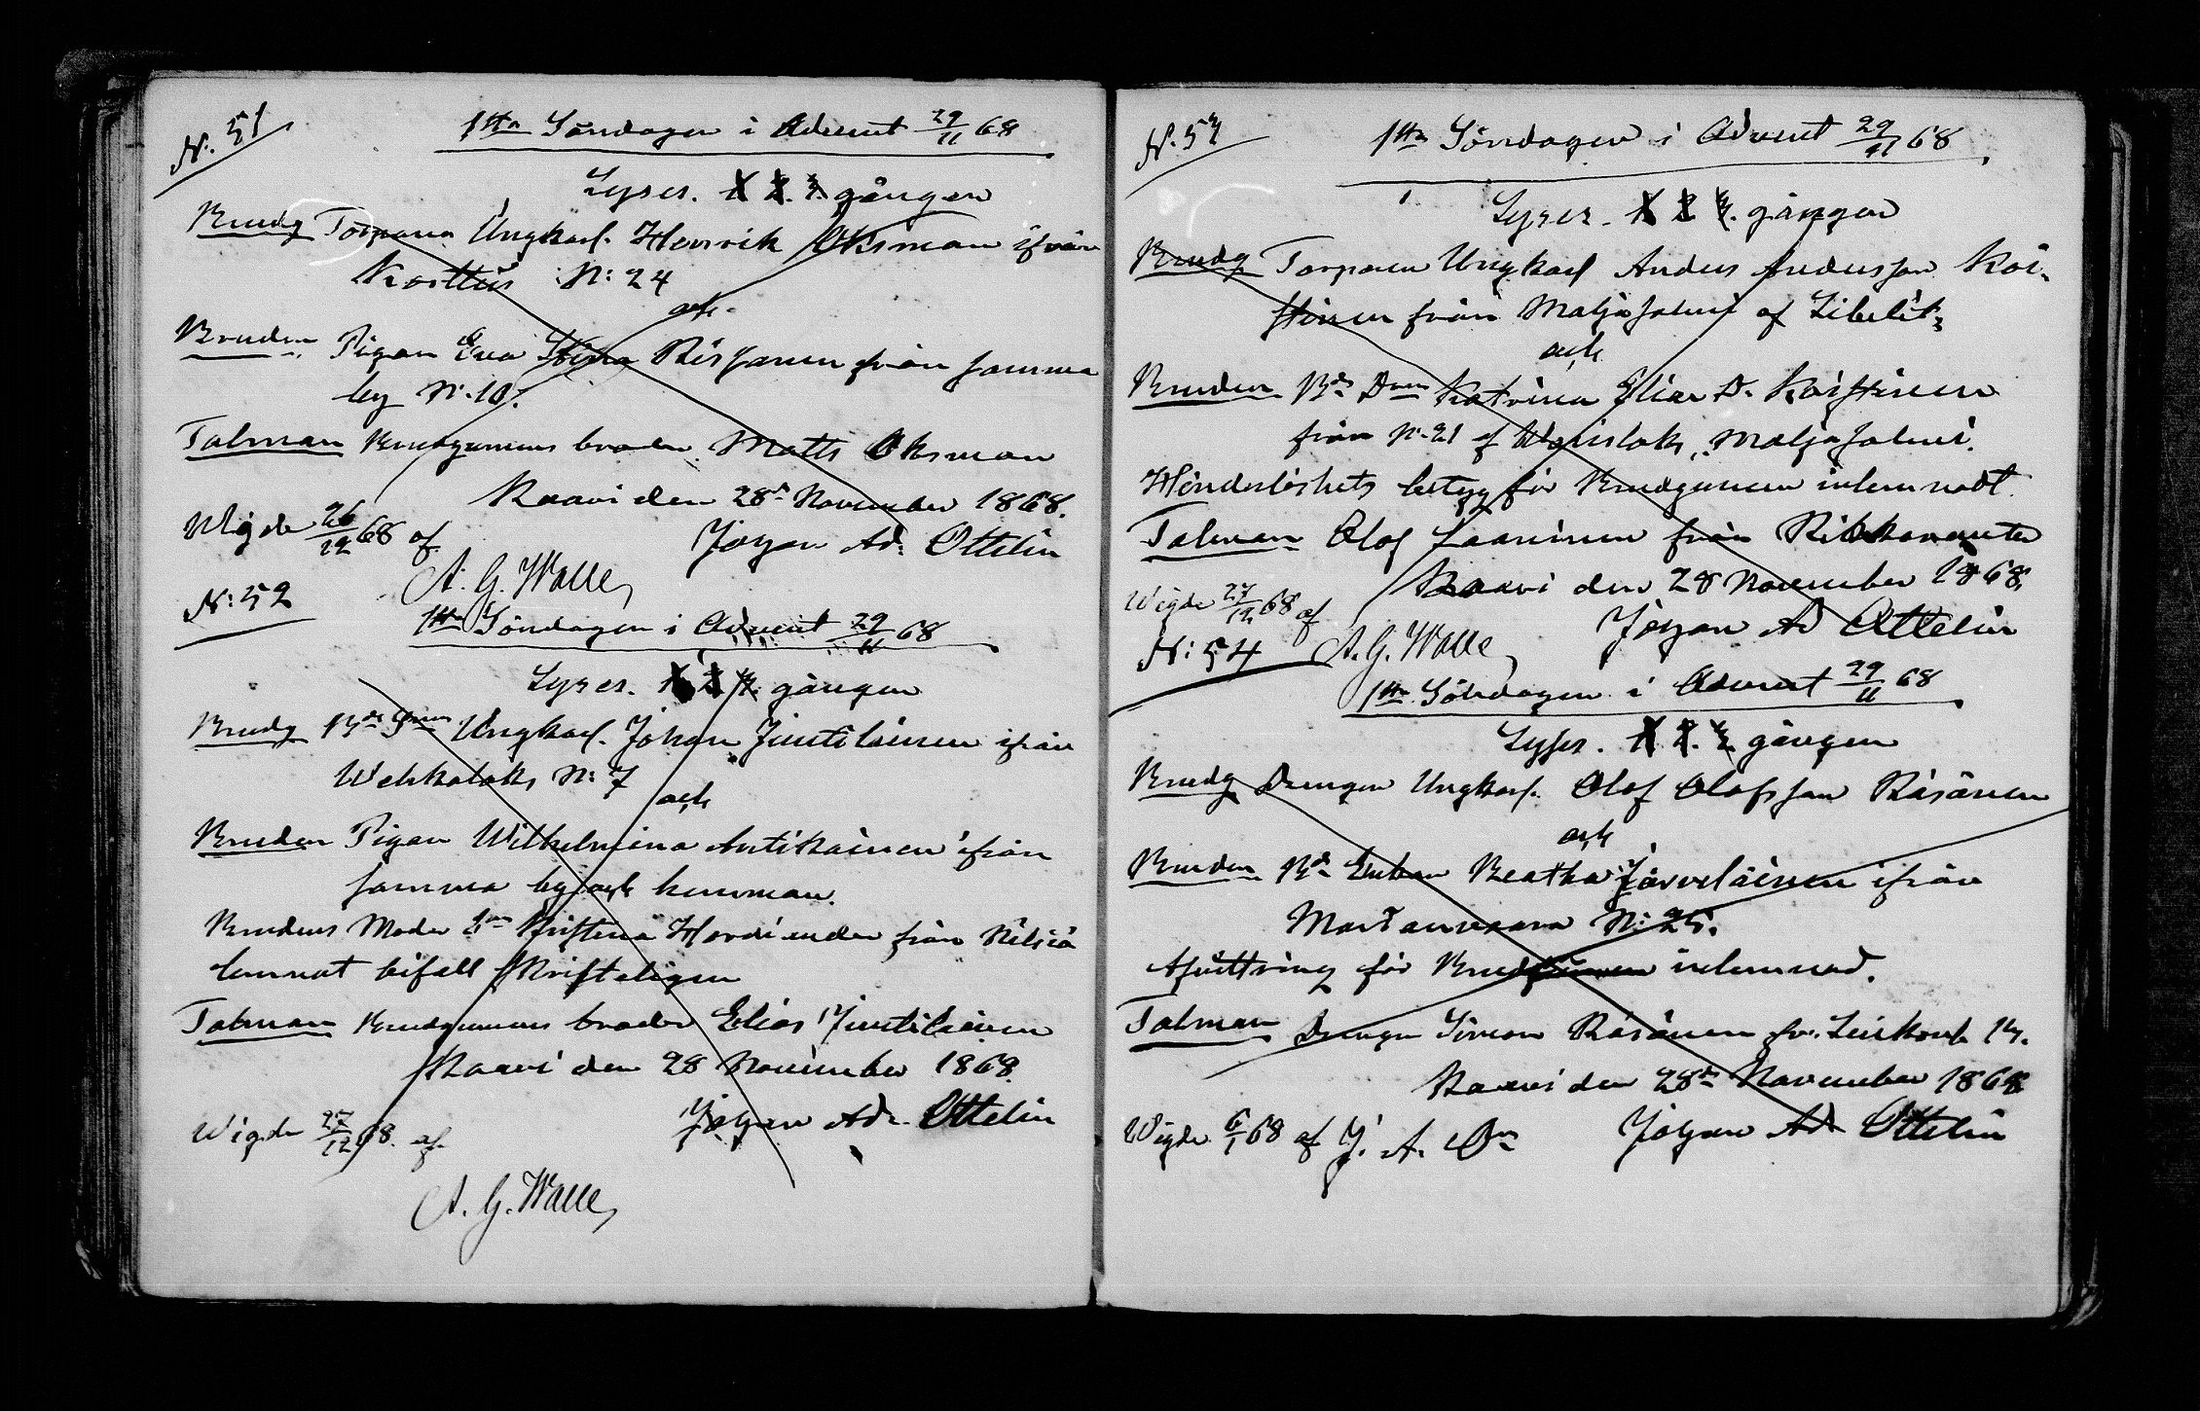 N: 51
1sta Söndagen i Advent 29/11 68
Lyses. 1 2. 3. gången
Brudg Torparen Ungkarl. Henrik Oksman ifrån
Korttus N: 24
och
Bruden Pigan Eva Stina Räsänen från samma
by N: 10.
Talman Brudgumens broder Matts Oksman
Kaavi den 28de November 1868.
Wigde 26/12 68 af
Johan Ad: Ottelin
A. G. Walle
N: 52
1sta Söndagen i Advent 29/11 68
Lyses. 1 2 3. gången
Brudg Bde Sonen Ungkarl. Johan Juutilainen ifrån
Wehkalaks N: 7
och
Bruden Pigan Wilhelmina Antikainen ifrån
samma by och hemman.
Brudens Moder Kristina från Nilsiä
lemnat bifall skrifteligen
Talman Brudgumens broder Elias Juutilainen
Kaavi den 28 November 1868.
Wigde 27/12 68. af
Johan Ad. Ottelin
A. G. Walle
N. 53
1sta Söndagen i Advent 29/11 68
Lyses. 1 2 3. gången
Brudg Torparen Ungkarl Anders Andersson Koi-
stinen från Maljasalmi af Libelits
och
Bruden Bde Dren Katrina Elias D. Koistinen
från N: 21 af Maljasalmi.
Hinderslöshets betyg för Brudgumen inlemnadt.
Talman Olof Laaninen från Rikkaranta
Kaavi den 28 November 1868.
Wigde 27/12 68 af
Johan Ad Ottelin
A. G. Walle
N: 54
1sta Söndagen i Advent 29/11 68
Lyses. 1 2. 3. gången
Brudg Drengen Ungkarl. Olof Olofsson Räsänen
och
Bruden Bde Enkan Beatha Järveläinen ifrån
Martanvaara N: 25.
Afvittring för Bruden inlemnad.
Talman Drengen Simon Räsänen fr. 14.
Kaavi den 28de November 1868
Wigde 6/1 68 af J. A. On
Johan Ad Ottelin